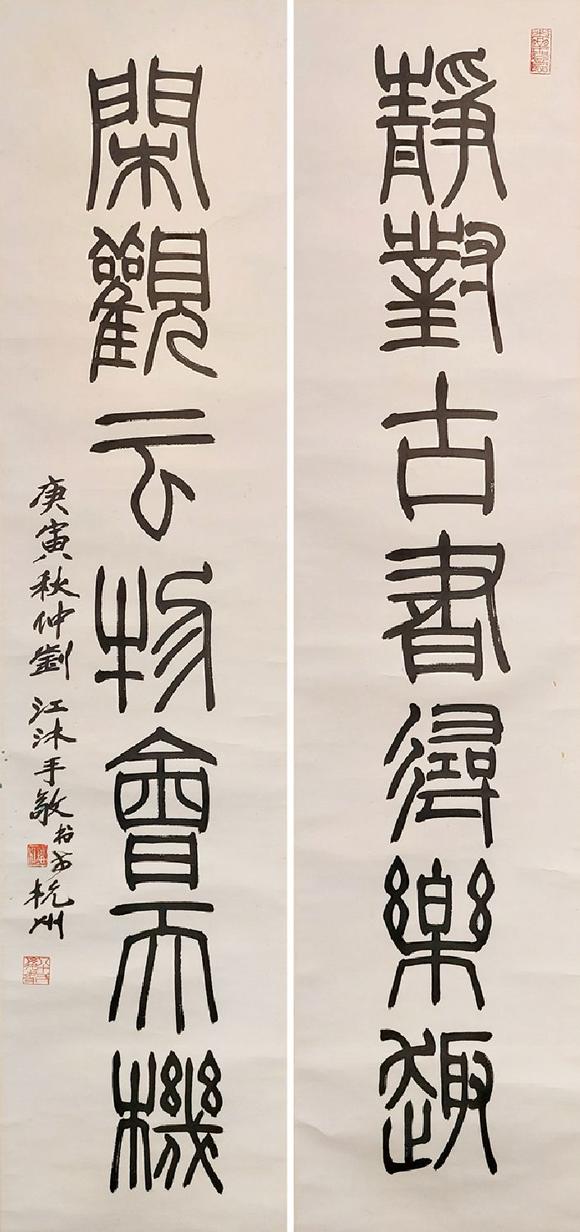 靜對古書尋樂趣
閑觀云物會天機
庚寅秋仲劉江沐手敬杭州